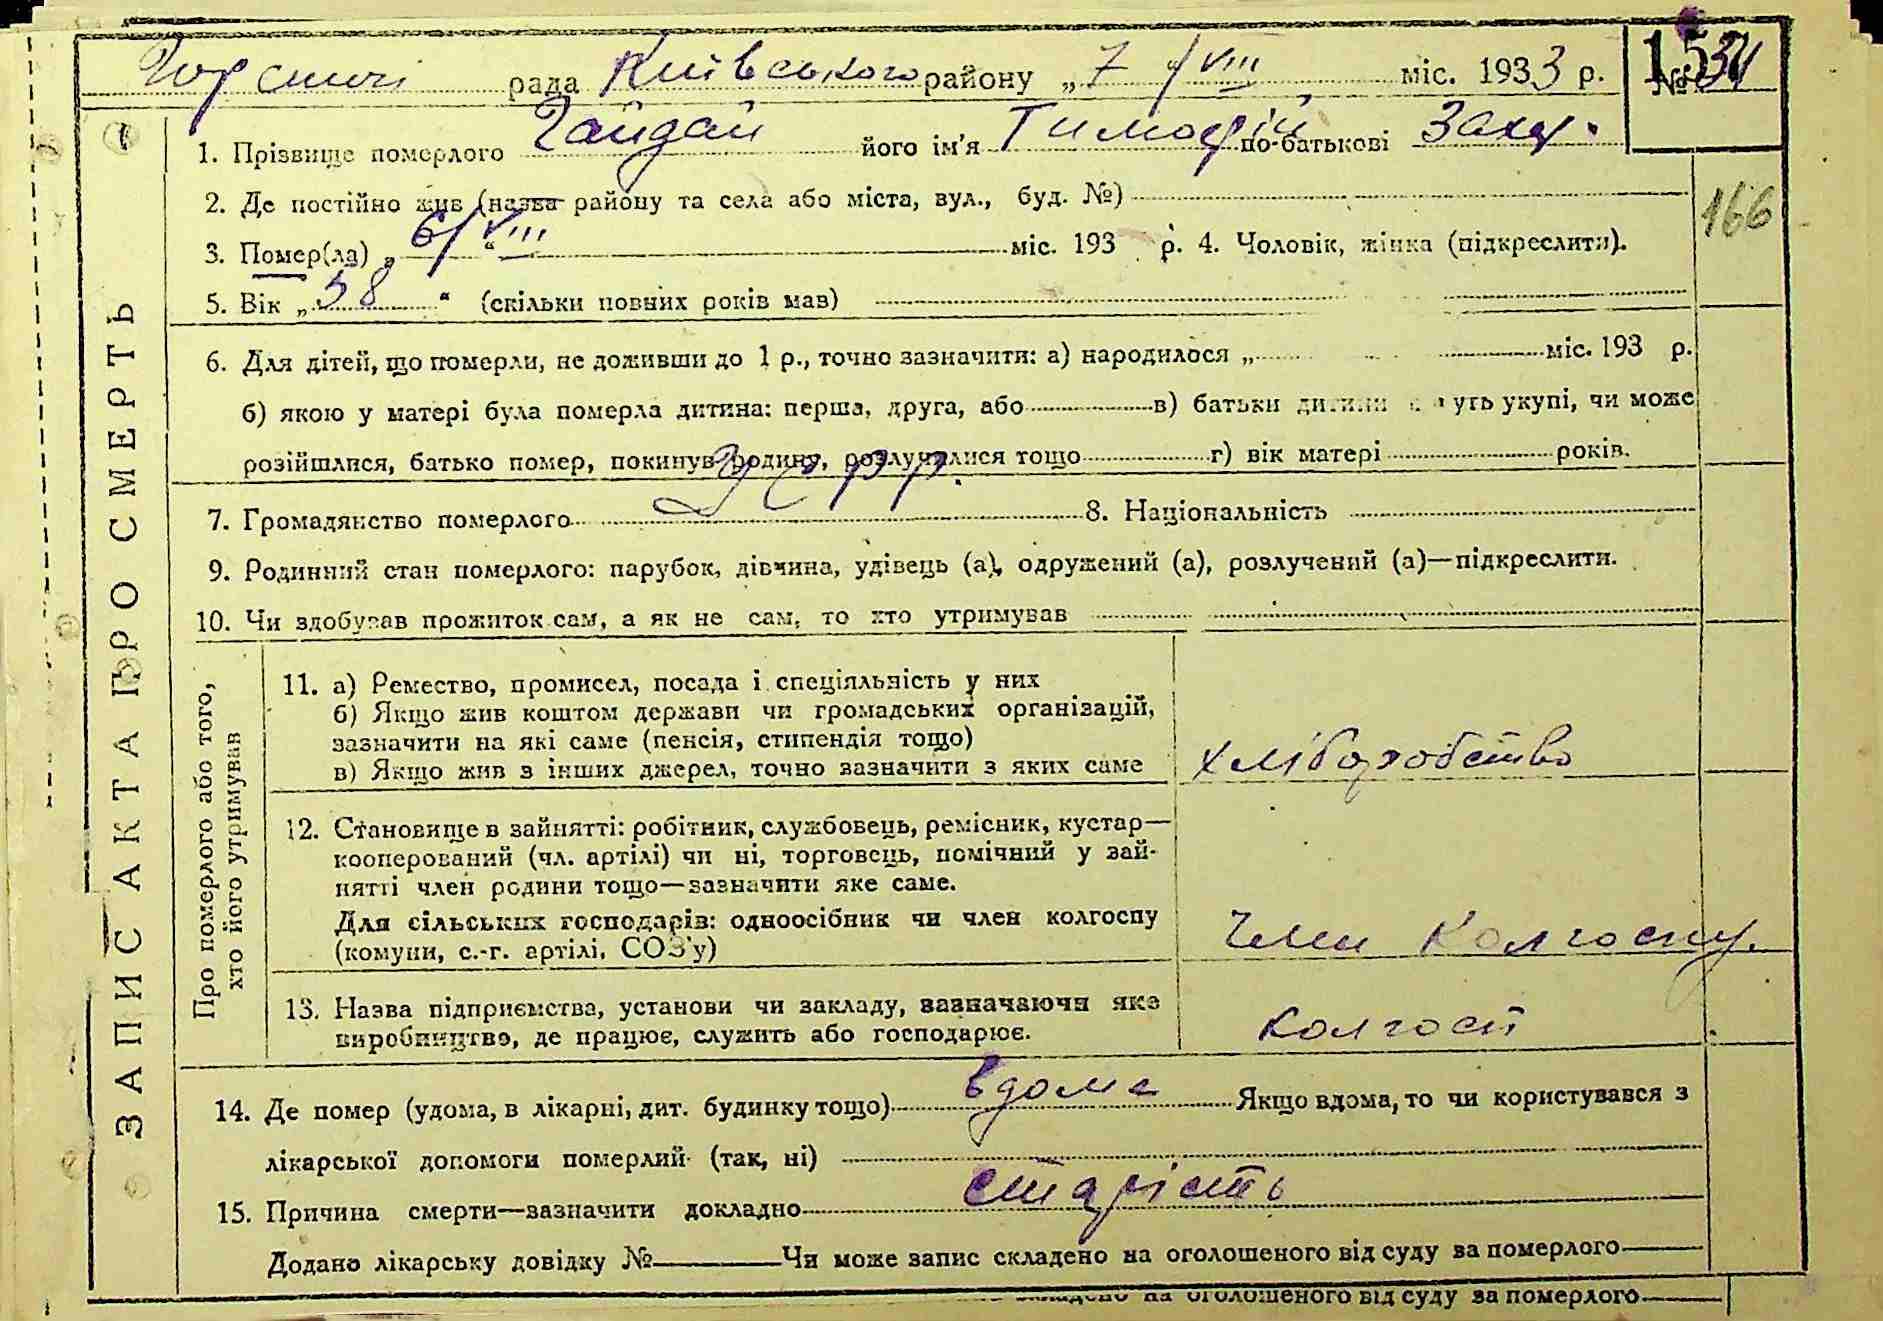 рада Київського району „7“/VIII міс. 1933 р. № 34
157
1. Прізвище померлого Гайдай його ім'я Тимофій по-батькові Захар.
2. Де постійно жив (назва району та села або міста, вул., буд. №)
166
3. Помер(ла) „6/VIII“ міс. 193 р. 4. Чоловік, жінка (підкреслити).
5. Вік „58“ (скільки повних років мав)
6. Для дітей, що померли, не доживши до 1 р., точно зазначити: а) народилося „ міс. 193 р.
б) якою у матері була померла дитина: перша, друга, або в) батьки дитини укупі, чи може
розійшлися, батько помер, покинув родину, розлучилися тощо г) вік матері років.
7. Громадянство померлого УСРР. 8. Національність
9. Родинний стан померлого: парубок, дівчина, удівець (а), одружений (а), розлучений (а)—підкреслити.
10. Чи здобував прожиток сам, а як не сам, то хто утримував
ЗАПИС АКТА ПРО СМЕРТЬ
Про померлого або того,
хто його утримував
11. а) Ремество, промисел, посада і спеціяльність у них
б) Якщо жив коштом держави чи громадських організацій,
зазначити на які саме (пенсія, стипендія тощо)
в) Якщо жив з інших джерел, точно зазначити з яких саме
хліборобство
12. Становище в зайнятті: робітник, службовець, ремісник, кустар—
кооперований (чл. артілі) чи ні, торговець, помічний у зай-
нятті член родини тощо—зазначити яке саме.
Для сільських господарів: одноосібник чи член колгоспу
(комуни, с.-г. артілі, СОЗ'у)
Член Колгоспу.
13. Назва підприємства, установи чи закладу, зазначаючи яке
виробництво, де працює, служить або господарює.
колгосп
14. Де помер (удома, в лікарні, дит. будинку тощо) вдома Якщо вдома, то чи користувався з
лікарської допомоги померлий (так, ні)
15. Причина смерти—зазначити докладно старість
Додано лікарську довідку № Чи може запис складено на оголошеного від суду за померлого
на оголошеного від суду за померлого